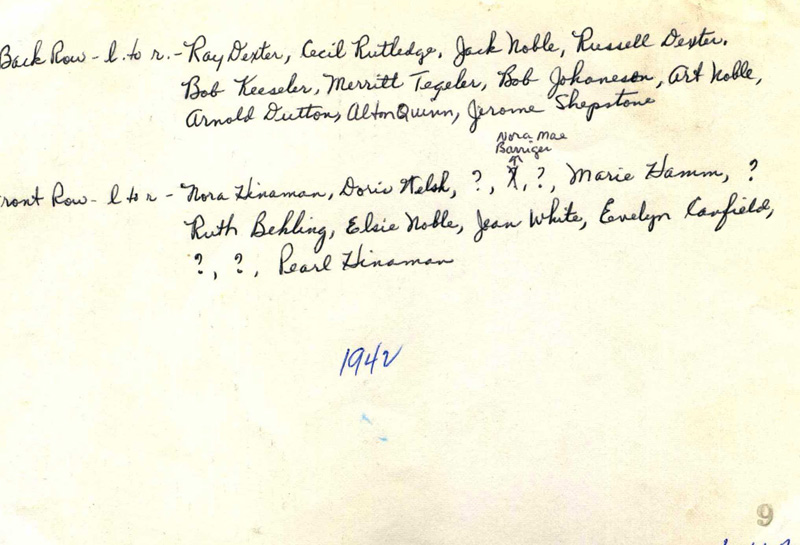 Back Row - l. to r. - Ray Dexter, Cecil Rutledge, Jack Noble, Russell Dexter.
Bob Keeseler, Merritt Tegeler, Bob Johaneson, Art Noble,
Arnold Dutton, Alton Quinn, Jerome Shepstone
Nora Mae
Barriger
ront Row - l to r - Nora Hinaman, Doris Welsh, ?, ?, Marie Hamm, ?
Ruth Behling, Elsie Noble, Jean White, Evelyn Canfield,
?, ?, Pearl Hinaman
1942
9